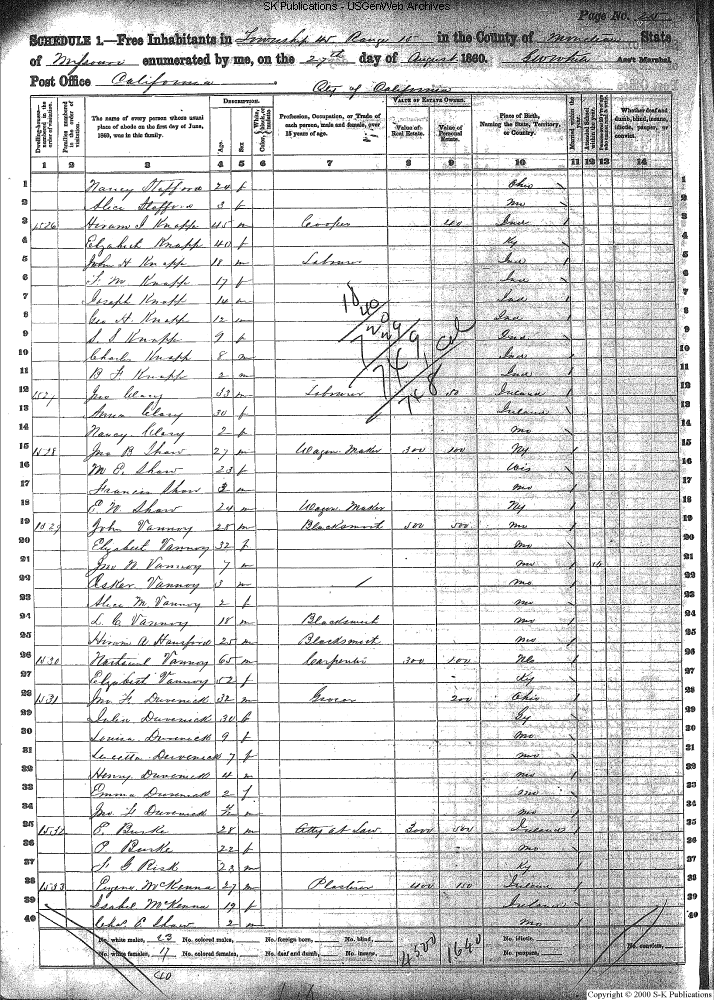 SK Publications - USGenWeb Archives
Page No.
SCHEDULE 1.—Free Inhabitants in Township 45 Range 15 in the County of Moniteau State
of Missouri enumerated by me, on the 27th day of August 1860. Ass't Marshal.
Post Office California City of California
Dwelling-houses—numbered in the order of visitation.
Families numbered in the order of visitation.
The name of every person whose usual place of abode on the first day of June, 1860, was in this family.
DESCRIPTION.
Age.
Sex.
Color, White, black, or mulatto.
Profession, Occupation, or Trade of each person, male and female, over 15 years of age.
VALUE OF ESTATE OWNED.
Value of Real Estate.
Value of Personal Estate.
Place of Birth, Naming the State, Territory, or Country.
Married within the year.
Attended School within the year.
Whether deaf and dumb, blind, insane, idiotic, pauper, or convict.
1 2 3 4 5 6 7 8 9 10 11 12 13 14
1 Nancy Stafford 24 f Ohio 1
2 Alice Stafford 3 f Mo 2
3 1526 Hiram J Knapp 45 m Cooper 40 Ind 3
4 Elizabeth Knapp 40 f Ky 4
5 John H Knapp 18 m Laborer Ind 5
6 Knapp 17 f Ind 6
7 Joseph Knapp 14 m Ind 7
8 Geo H. Knapp 12 m Ind 8
9 S. S Knapp 9 f Ind 9
10 Charles Knapp 8 m Ind 10
11 B F Knapp 2 m Ind 11
12 1527 Jno Clary 33 m Laborer 50 Ireland 12
13 Clary 30 f Ireland 13
14 Nancy Clary 2 f Mo 14
15 1528 Jno B Shaw 27 m Wagon Maker 300 100 Ny 15
16 M E. Shaw 23 f Wis 16
17 Francis Shaw 3 m Mo 17
18 E. W. Shaw 24 m Wagon Maker Ny 18
19 1529 John Vannoy 28 m Blacksmith 500 500 Mo 19
20 Elizabeth Vannoy 32 f Mo 20
21 Jno N Vannoy 7 m Mo 21
22 Oskar Vannoy 3 m Mo 22
23 Alice M. Vannoy 2 f Mo 23
24 L. C Vannoy 18 m Blacksmith Mo 24
25 Hiram A Hansford 25 m Blacksmith Mo 25
26 1530 Nathaniel Vannoy 65 m Carpenter 300 100 26
27 Elizabeth Vannoy 52 f Ky 27
28 1531 Jno F Duvenick 32 m Grocer 200 Ohio 28
29 Julia Duvenick 30 f 29
30 Louisa Duvenick 9 f Mo 30
31 Lucetta Duvenick 7 f Mo 31
32 Henry Duvenick 4 m Mo 32
33 Emma Duvenick 2 f Mo 33
34 Jno F Duvenick m Mo 34
35 1532 E. Burke 28 m Atty at Law 3000 500 Ireland 35
36 P. Burke 22 f Mo 36
37 G Risk 23 m Ky 37
38 1533 Eugene McKenna 27 m Plasterer 400 150 Ireland 38
39 Isabel McKenna 19 f Ireland 39
40 Chas E Shaw 2 m Mo 40
No. white males, 23 No. colored males, No. foreign born, No. blind, 4500 1640 No. idiotic,
No. white females, 17 No. colored females, No. deaf and dumb, No. insane, No. paupers, No. convicts,
40
Copyright © 2000 S-K Publications